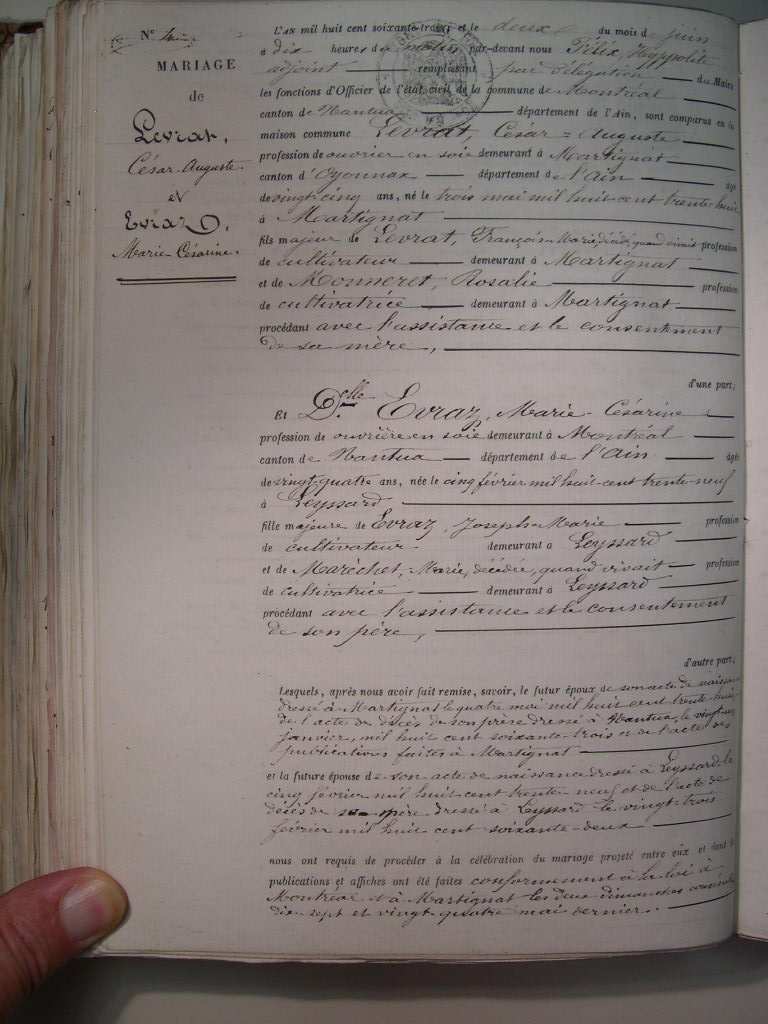 N°
MARIAGE
de
Levrat,
César-Auguste
et
Evraz,
Marie Césarine.
L'AN mil huit cent soixante-trois et le deux du mois de juin
à dix heures du matin par-devant nous Félix, Hyppolite
adjoint remplissant par délégation du Maire
les fonctions d'Officier de l'état civil de la commune de Montréal
canton de Nantua département de l'AIN, sont comparus en la
maison commune Levrat, César-Auguste
profession de ouvrier en soie demeurant à Martignat
canton d'Oyonnax département de l'ain âgé
de vingt-cinq ans, né le trois mai mil huit-cent trente-huit
à Martignat
fils majeur de Levrat, François Marie décédé, quand vivait profession
de cultivateur demeurant à Martignat
et de Monneret, Rosalie profession
de cultivatrice demeurant à Martignat
procédant avec l'assistance et le consentement
de sa mère,
d'une part,
Et Delle Evraz, Marie-Césarine
profession de ouvrière en soie demeurant à Montréal
canton de Nantua département de l'ain âgée
de vingt-quatre ans, née le cinq février mil huit-cent trente-neuf
à Leyssard
fille majeure de Evraz, Joseph-Marie profession
de cultivateur demeurant à Leyssard
et de Maréchet, Marie, décédée, quand vivait profession
de cultivatrice demeurant à Leyssard
procédant avec l'assistance et le consentement
de son père,
d'autre part,
Lesquels, après nous avoir fait remise, savoir, le futur époux de son acte de naissance
dressé à Martignat le quatre mai mil huit cent trente-huit,
de l'acte de décès de son père dressé à Nantua, le vingt-
janvier, mil huit cent soixante-trois et de l'acte des
publications faites à Martignat
et la future épouse de son acte de naissance dressé à Leyssard le
cinq février mil huit cent trente-neuf et de l'acte de
décès de sa mère dressé à Leyssard le vingt-trois
février mil huit cent soixante-deux
nous ont requis de procéder à la célébration du mariage projeté entre eux et dont les
publications et affiches ont été faites conformément à la loi à
Montréal et à Martignat les deux dimanches
dix-sept et vingt-quatre mai dernier.